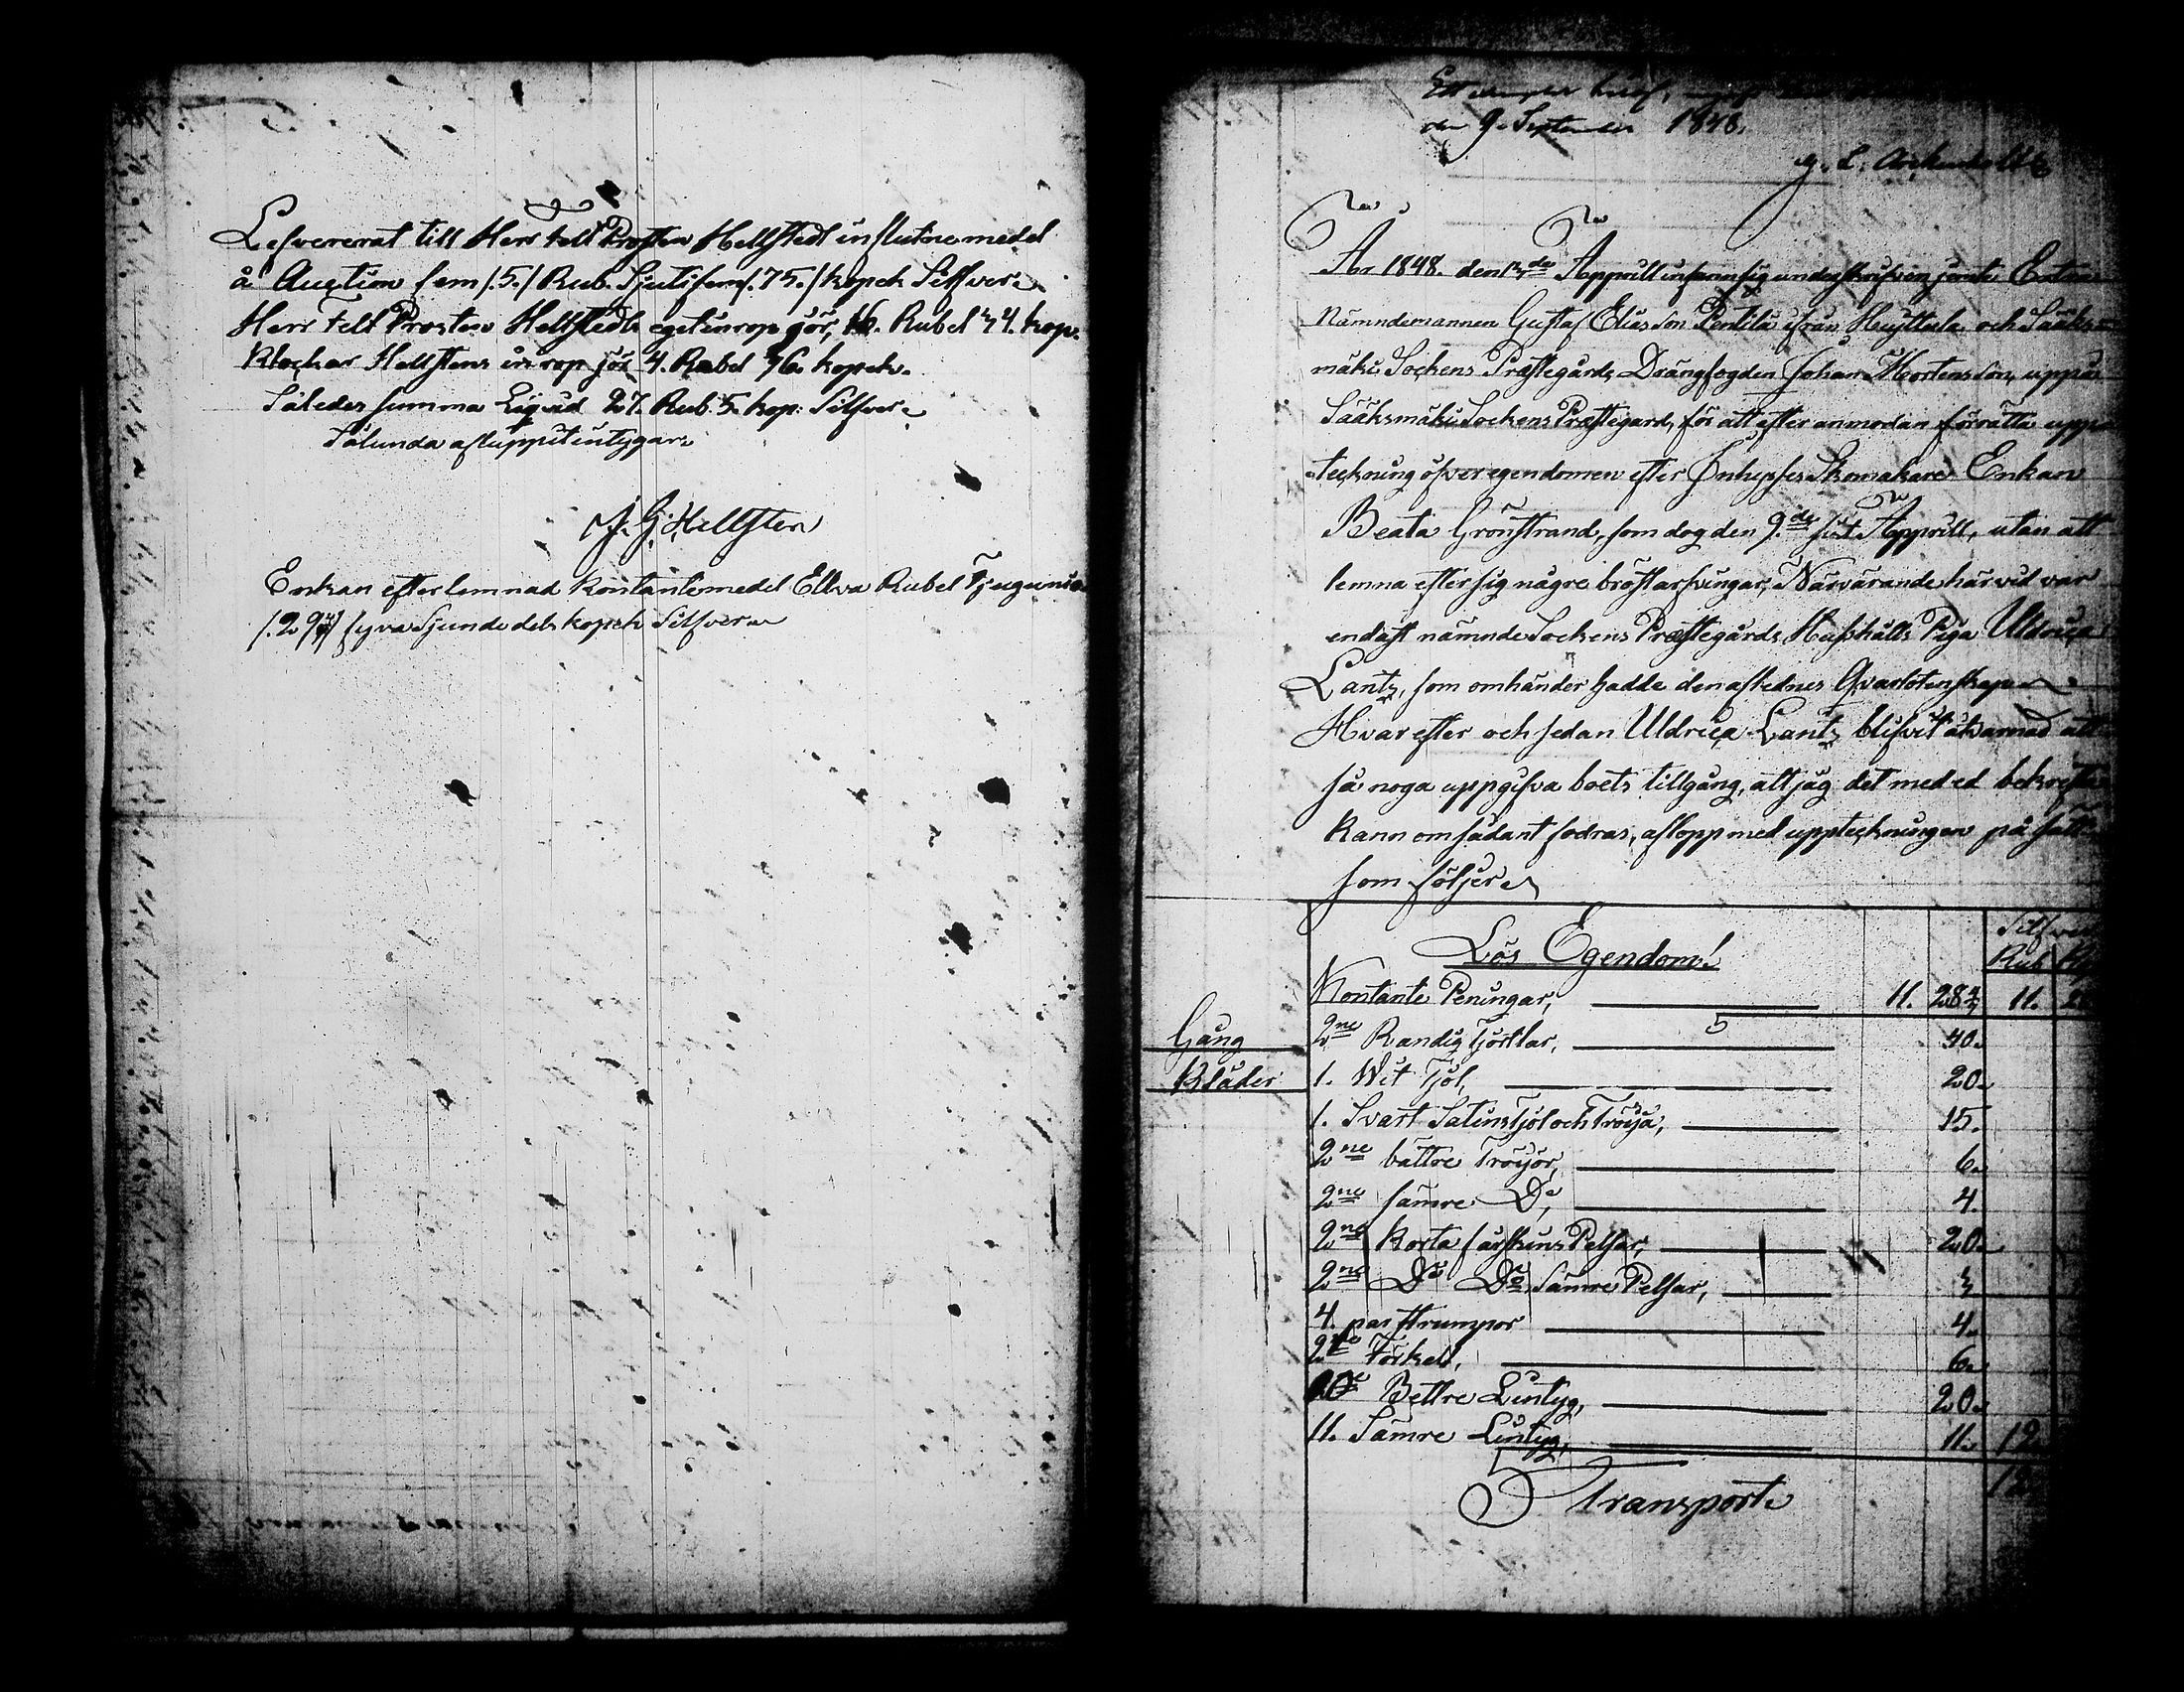 Lefvererat till Herr Felt Prosten Hellstedt influtne medel
å Auction fem /.5./ Rub. Sjutifem /.75./ kopek Silfver.
Herr Felt Prosten Hellstedts eget inrop gör, 16. Rubel 54. kop.
Klockar Hellstens inrop gör 4. Rubel 76. kopek.
Således summa Liqvid 27. Rub. 5. kop: Silfver.
Sålunda aflupptit intygar.
J. G. Hellsten
Enkan efterlemnad Kontante medel Ellva Rubel Tjugunio
/.29 fyra Sjundedels kopek Silfver
Ett
den 9. September 1848.
År 1848. den Apprill infann sig underskrifven jemte
Nämndemannen Gustaf Eliasson Pentilä ifrån Huyttula och Sääks-
mäki Sockens Prestegårds Drängfogden Johan Mortensson, uppå
Sääksmäki Sockens Prestegard, för att efter anmodan förrätta upp
teckning öfver egendomen efter Inhyses Skomakare Enkan
Beata Grönstrand, som dog den 9.de sist Apprill, utan att
lemna efter sig någre bröstarfvingar, Närvarande härvid var
endast nämnde Sockens Prestegårds Hushålls Piga Uldrica
Lantz, som omhänder hadde den aflednes Qvarlotenskap
Hvarefter och sedan Uldrica Lantz blifvit åtvarnad att
så noga uppgifva boets tillgång, att jag det med ed bekräfta
kann om sådant fodras, aflopp med uppteckningen på sätt
som följer
Silfver
Lös Egendom! Rub
Kontante Peningar, 11. 28 4/7 11.
Gång 2ne Randig Tjortlar, 40.
Kläder 1. Wit Tjol, 20.
1. Svart Satins Tjol och Tröija, 15.
2ne bättre Tröijor, 6.
2ne sämre Do, 4.
2ne Korta fårskins Pelsar, 20.
2ne Do Do Sämre Pelsar,
4. par strumpor 4.
2ne Förkel, 6.
Bettre Lintyg, 20.
11. Sämre Lintyg, 11. 12.
Transport